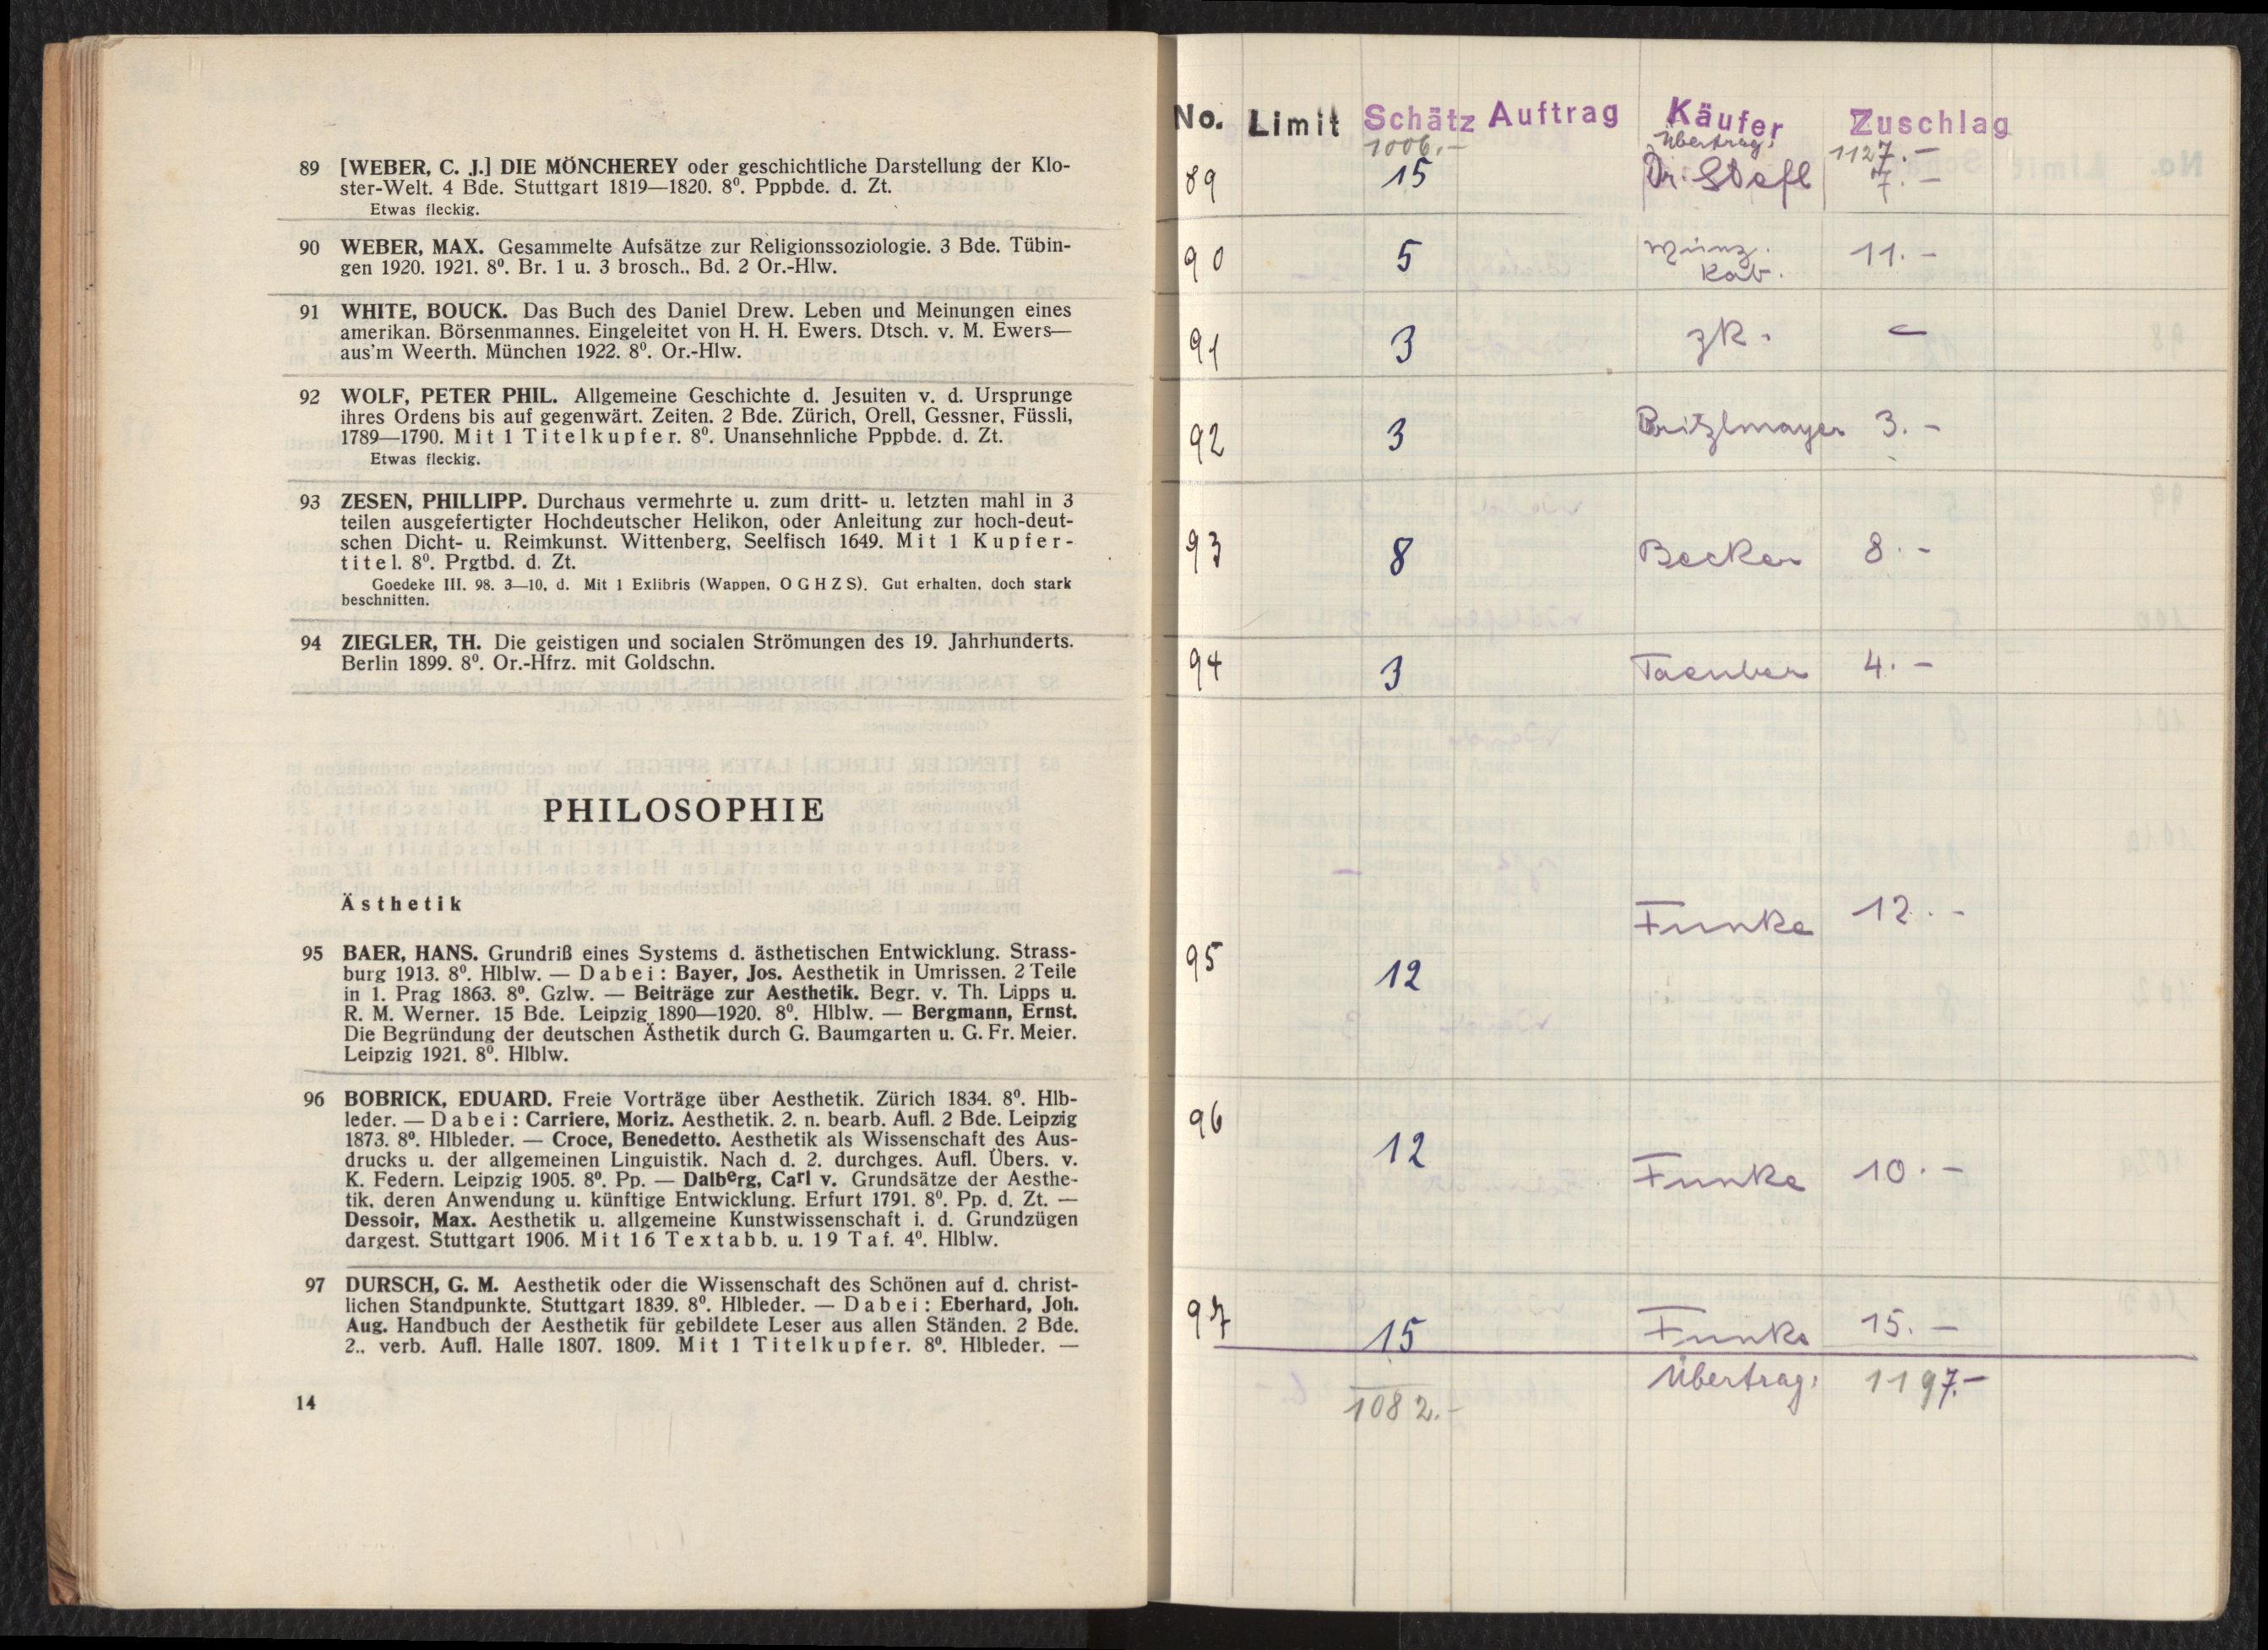 89 [WEBER, C. J.] DIE MÖNCHEREY oder geschichtliche Darstellung der Klo-
ster-Welt. 4 Bde. Stuttgart 1819—1820. 8⁰. Pppbde. d. Zt.
Etwas fleckig.
90 WEBER, MAX. Gesammelte Aufsätze zur Religionssoziologie. 3 Bde. Tübin-
gen 1920. 1921. 8⁰. Br. 1 u. 3 brosch., Bd. 2 Or.-Hlw.
91 WHITE, BOUCK. Das Buch des Daniel Drew. Leben und Meinungen eines
amerikan. Börsenmannes. Eingeleitet von H. H. Ewers. Dtsch. v. M. Ewers—
aus'm Weerth. München 1922. 8⁰. Or.-Hlw.
92 WOLF, PETER PHIL. Allgemeine Geschichte d. Jesuiten v. d. Ursprunge
ihres Ordens bis auf gegenwärt. Zeiten. 2 Bde. Zürich, Orell, Gessner, Füssli,
1789—1790. Mit 1 Titelkupfer. 8⁰. Unansehnliche Pppbde. d. Zt.
Etwas fleckig.
93 ZESEN, PHILLIPP. Durchaus vermehrte u. zum dritt- u. letzten mahl in 3
teilen ausgefertigter Hochdeutscher Helikon, oder Anleitung zur hoch-deut-
schen Dicht- u. Reimkunst. Wittenberg, Seelfisch 1649. Mit 1 Kupfer-
titel. 8⁰. Prgtbd. d. Zt.
Goedeke III. 98. 3—10, d. Mit 1 Exlibris (Wappen, O G H Z S). Gut erhalten, doch stark
beschnitten.
94 ZIEGLER, TH. Die geistigen und socialen Strömungen des 19. Jahrhunderts.
Berlin 1899. 8⁰. Or.-Hfrz. mit Goldschn.
PHILOSOPHIE
Ästhetik
95 BAER, HANS. Grundriß eines Systems d. ästhetischen Entwicklung. Strass-
burg 1913. 8⁰. Hlblw. — Dabei: Bayer, Jos. Aesthetik in Umrissen. 2 Teile
in 1. Prag 1863. 8⁰. Gzlw. — Beiträge zur Aesthetik. Begr. v. Th. Lipps u.
R. M. Werner. 15 Bde. Leipzig 1890—1920. 8⁰. Hlblw. — Bergmann, Ernst.
Die Begründung der deutschen Ästhetik durch G. Baumgarten u. G. Fr. Meier.
Leipzig 1921. 8⁰. Hlblw.
96 BOBRICK, EDUARD. Freie Vorträge über Aesthetik. Zürich 1834. 8⁰. Hlb-
leder. — Dabei: Carriere, Moriz. Aesthetik. 2. n. bearb. Aufl. 2 Bde. Leipzig
1873. 8⁰. Hlbleder. — Croce, Benedetto. Aesthetik als Wissenschaft des Aus-
drucks u. der allgemeinen Linguistik. Nach d. 2. durchges. Aufl. Übers. v.
K. Federn. Leipzig 1905. 8⁰. Pp. — Dalberg, Carl v. Grundsätze der Aesthe-
tik, deren Anwendung u. künftige Entwicklung. Erfurt 1791. 8⁰. Pp. d. Zt. —
Dessoir, Max. Aesthetik u. allgemeine Kunstwissenschaft i. d. Grundzügen
dargest. Stuttgart 1906. Mit 16 Textabb. u. 19 Taf. 4⁰. Hlblw.
97 DURSCH, G. M. Aesthetik oder die Wissenschaft des Schönen auf d. christ-
lichen Standpunkte. Stuttgart 1839. 8⁰. Hlbleder. — Dabei: Eberhard, Joh.
Aug. Handbuch der Aesthetik für gebildete Leser aus allen Ständen. 2 Bde.
2., verb. Aufl. Halle 1807. 1809. Mit 1 Titelkupfer. 8⁰. Hlbleder. —
14
No. Limit Schätz Auftrag Käufer Zuschlag
1006.- Übertrag: 1127.-
89 15 Dr. Stefl 7.-
90 5 Münz. 11.-
Kab.
91 3 zk. -
92 3 Britzlmayer 3.-
93 8 Becker 8.-
94 3 Taeuber 4.-
Funke 12.-
95 12
96
12 Funke 10.-
97 15 Funke 15.-
Übertrag: 1197.-
1082.-